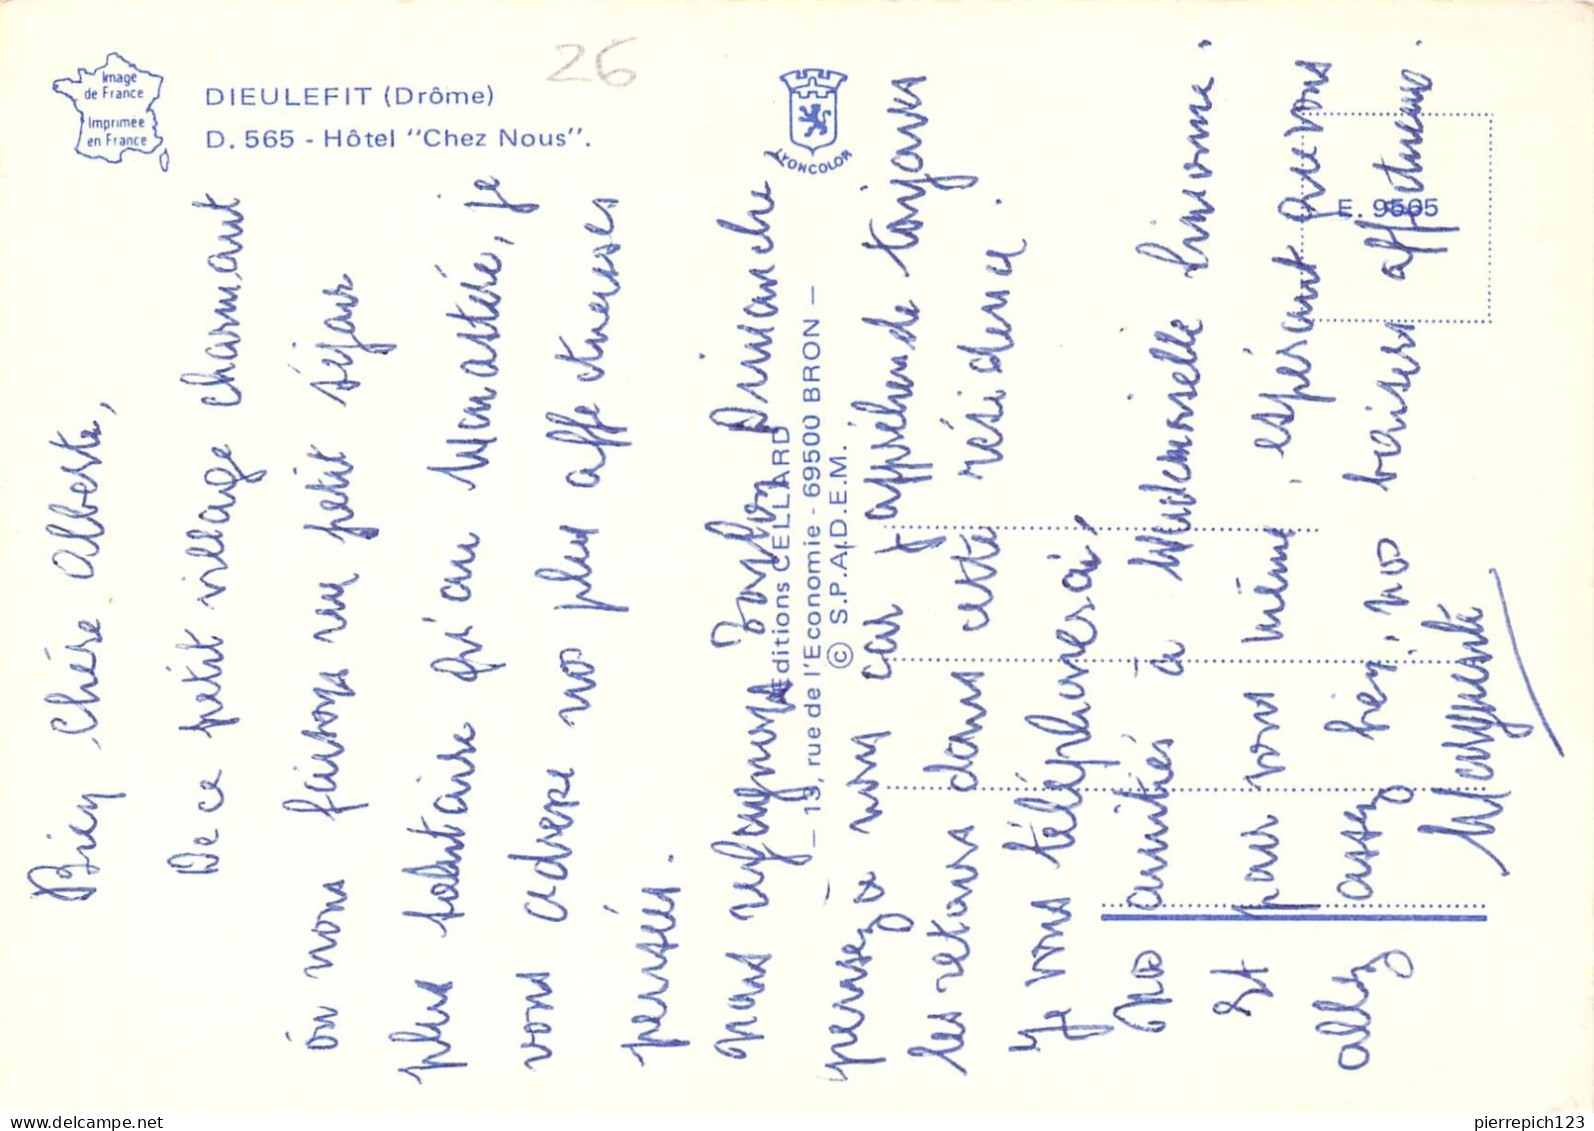 Image
de France
Imprimée
en France
DIEULEFIT (Drôme)
D. 565 - Hôtel "Chez Nous".
26
LYONCOLOR
E. 9505
Editions CELLARD
— 13, rue de l'Economie - 69500 BRON —
© S.P.A.D.E.M.
Bien Chère Alberte,
De ce petit village charmant
où nous faisons un petit séjour
plus solitaire qu'au Monastère, je
vous adresse nos plus affectueuses
pensées.
Nous regagnons Toulon Dimanche
pensez à nous car j'appréhende toujours
les retours dans cette résidence.
Je vous téléphonerai,
Nos amitiés à Mademoiselle Simone.
Et pour vous même, espérant que vous
allez assez bien, nos baisers affectueux.
Marguerite
pierrepich123